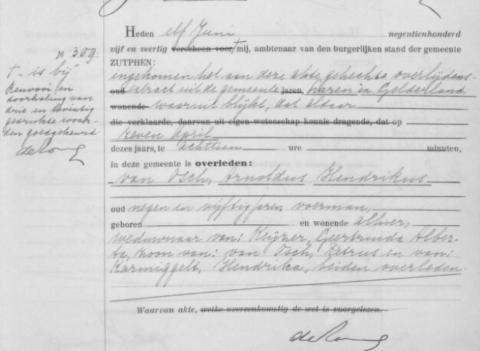 Nº 309
† - is bij
Renvooi en
doorhaling van
drie en twintig
gedrukte woor-
den goedgekeurd
de Jong
Heden elf Juni negentienhonderd
vijf en veertig verscheen voor † mij, ambtenaar van den burgerlijken stand der gemeente
ZUTPHEN:
ingekomen het aan deze akte gehechte overlijdens-
extract uit de gemeente jaren, in Gelderland
wonende waaruit blijkt, dat aldaar
die verklaarde, daarvan uit eigen wetenschap kennis dragende, dat op
zeven April
dezes jaars, te achttien ure minuten,
in deze gemeente is overleden:
van Osch, Arnoldus Hendrikus
oud negen en vijftig jaren voerman,
geboren en wonende alhier,
weduwnaar van: Keijzer, Geertruida Alber-
ta, zoon van: van Osch, Petrus en van:
Karmiggelt, Hendrika, beiden overleden
Waarvan akte, welke overeenkomstig de wet is voorgelezen.
de Jong